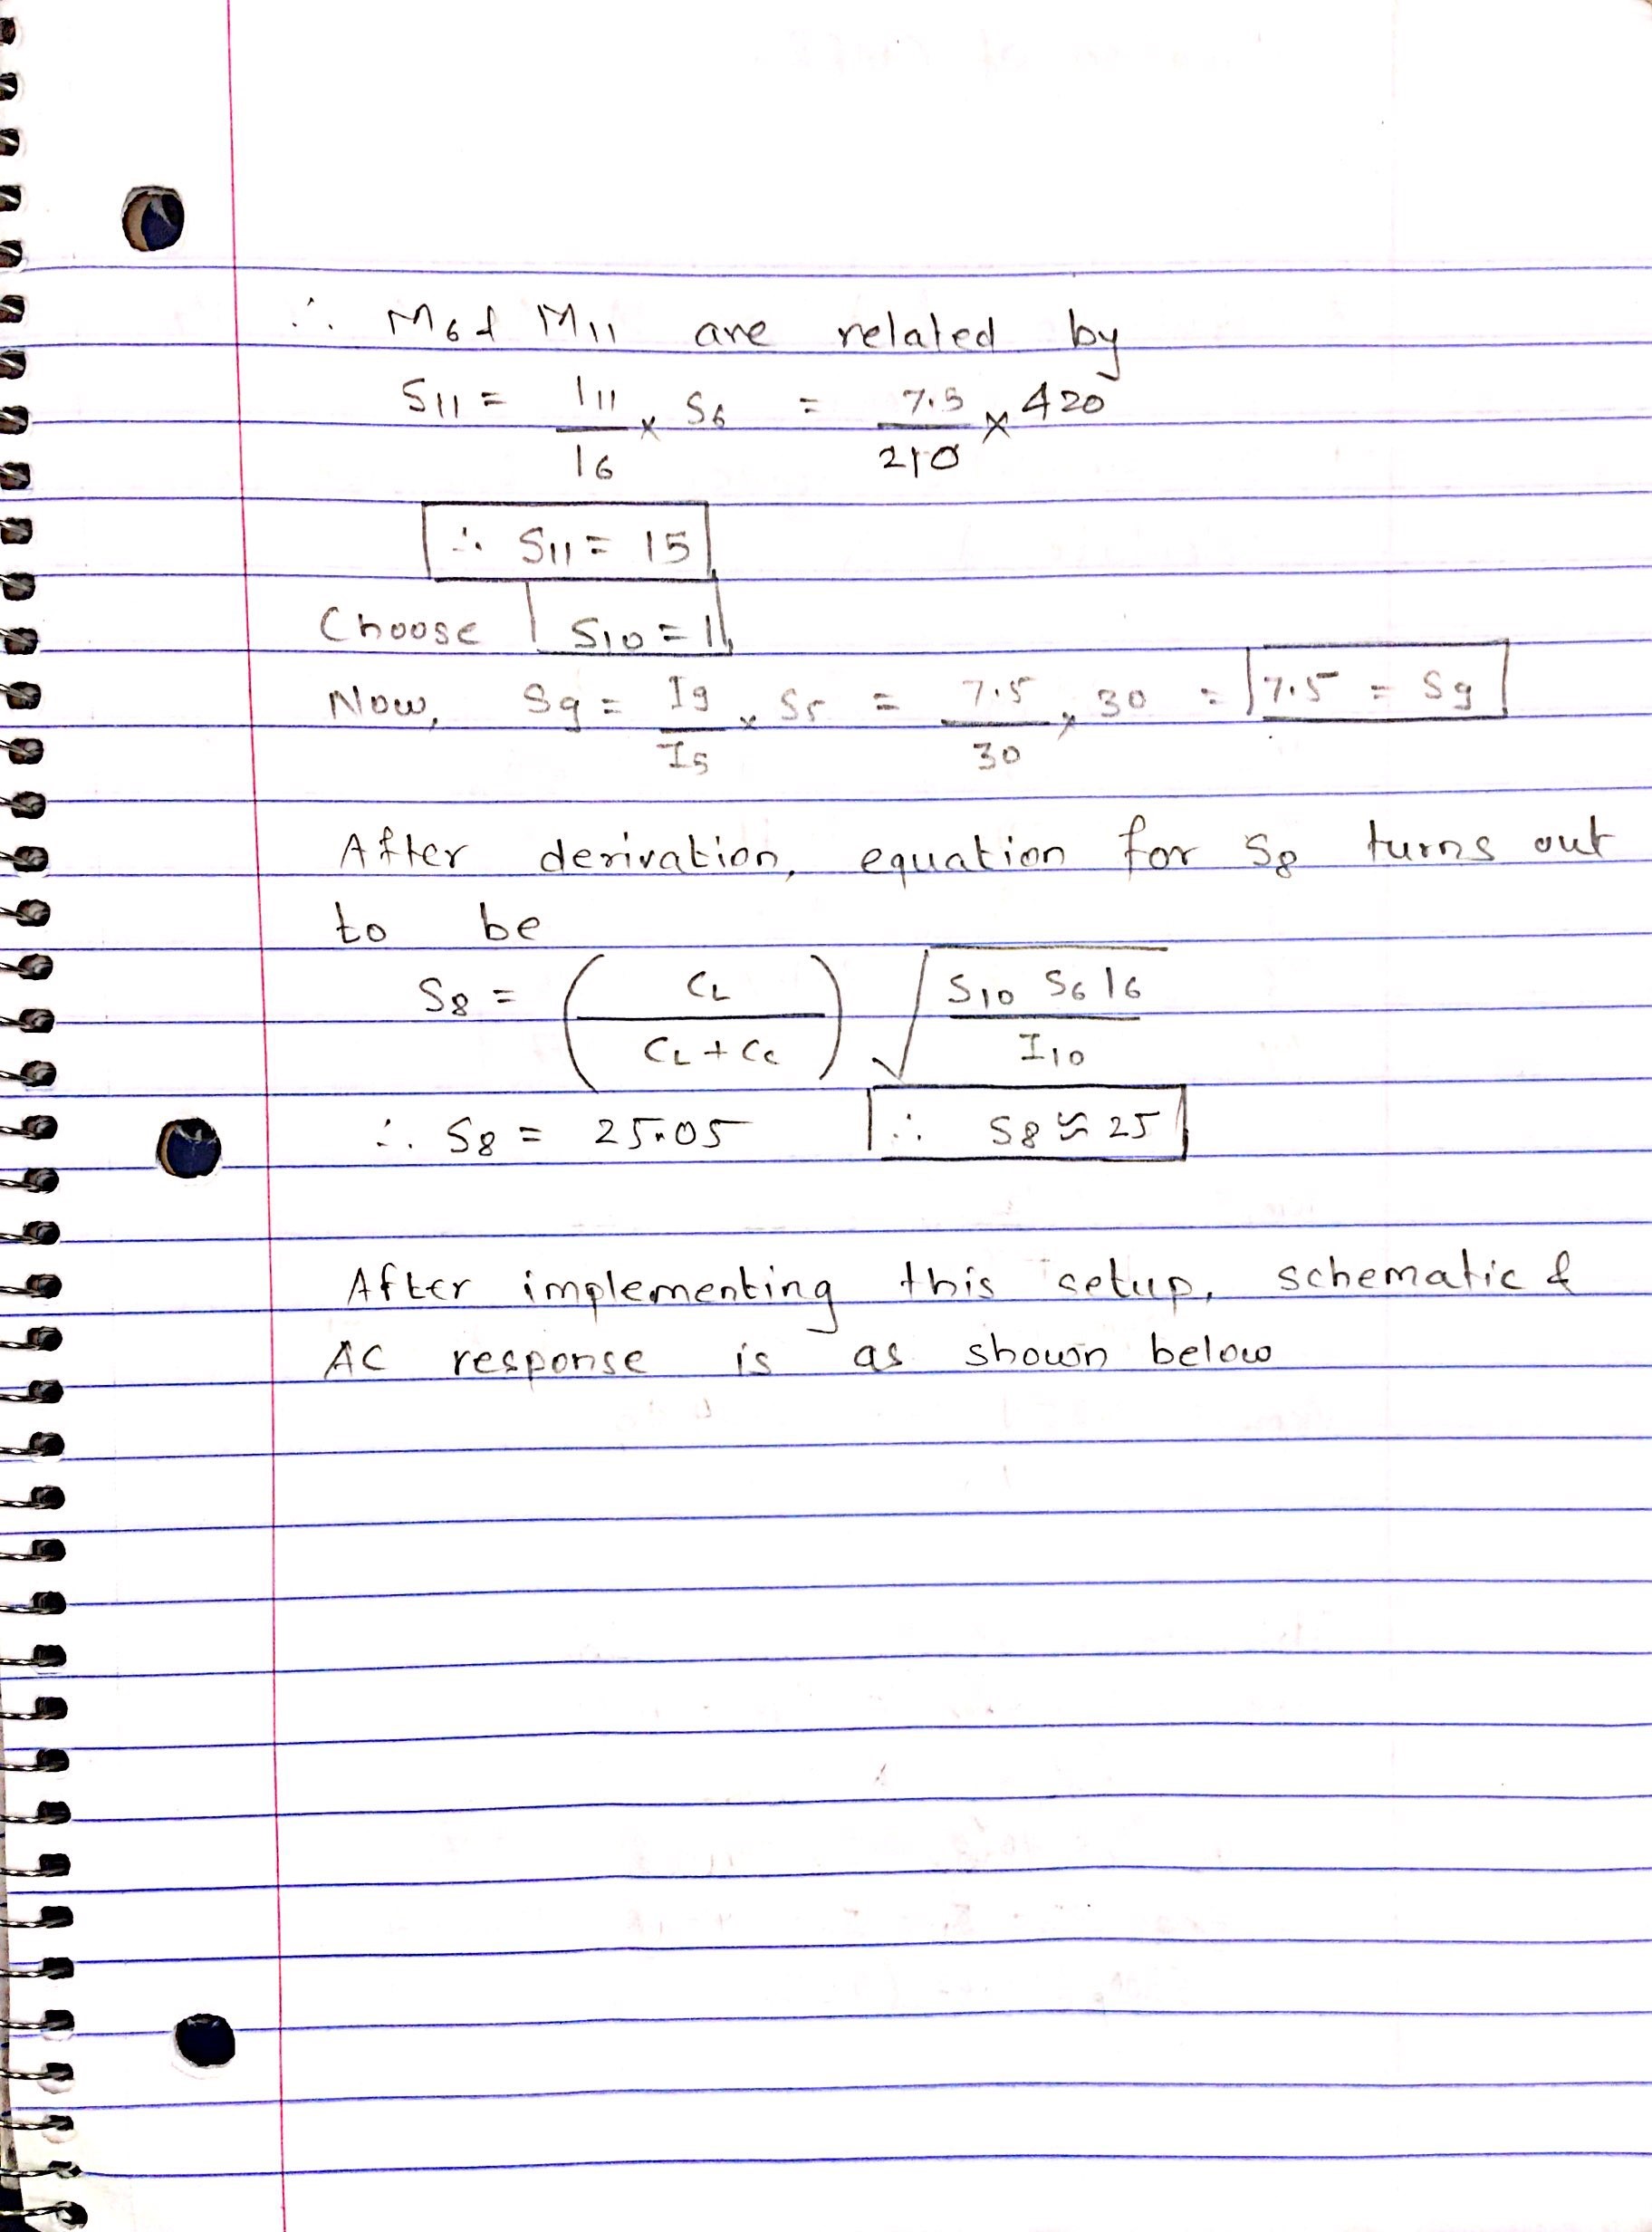 ∴ M6 & M11 are related by
S11 = I11/I6 × S6 = 7.5/210 × 420
∴ S11 = 15
Choose S10 = 1
Now, S9 = I9/I5 × S5 = 7.5/30 × 30 = 7.5 = S9
After derivation, equation for S8 turns out
to be
S8 = (CL/(CL + Cc)) √(S10 S6 I6/I10)
∴ S8 = 25.05 ∴ S8 ≈ 25
After implementing this setup, schematic &
AC response is as shown below